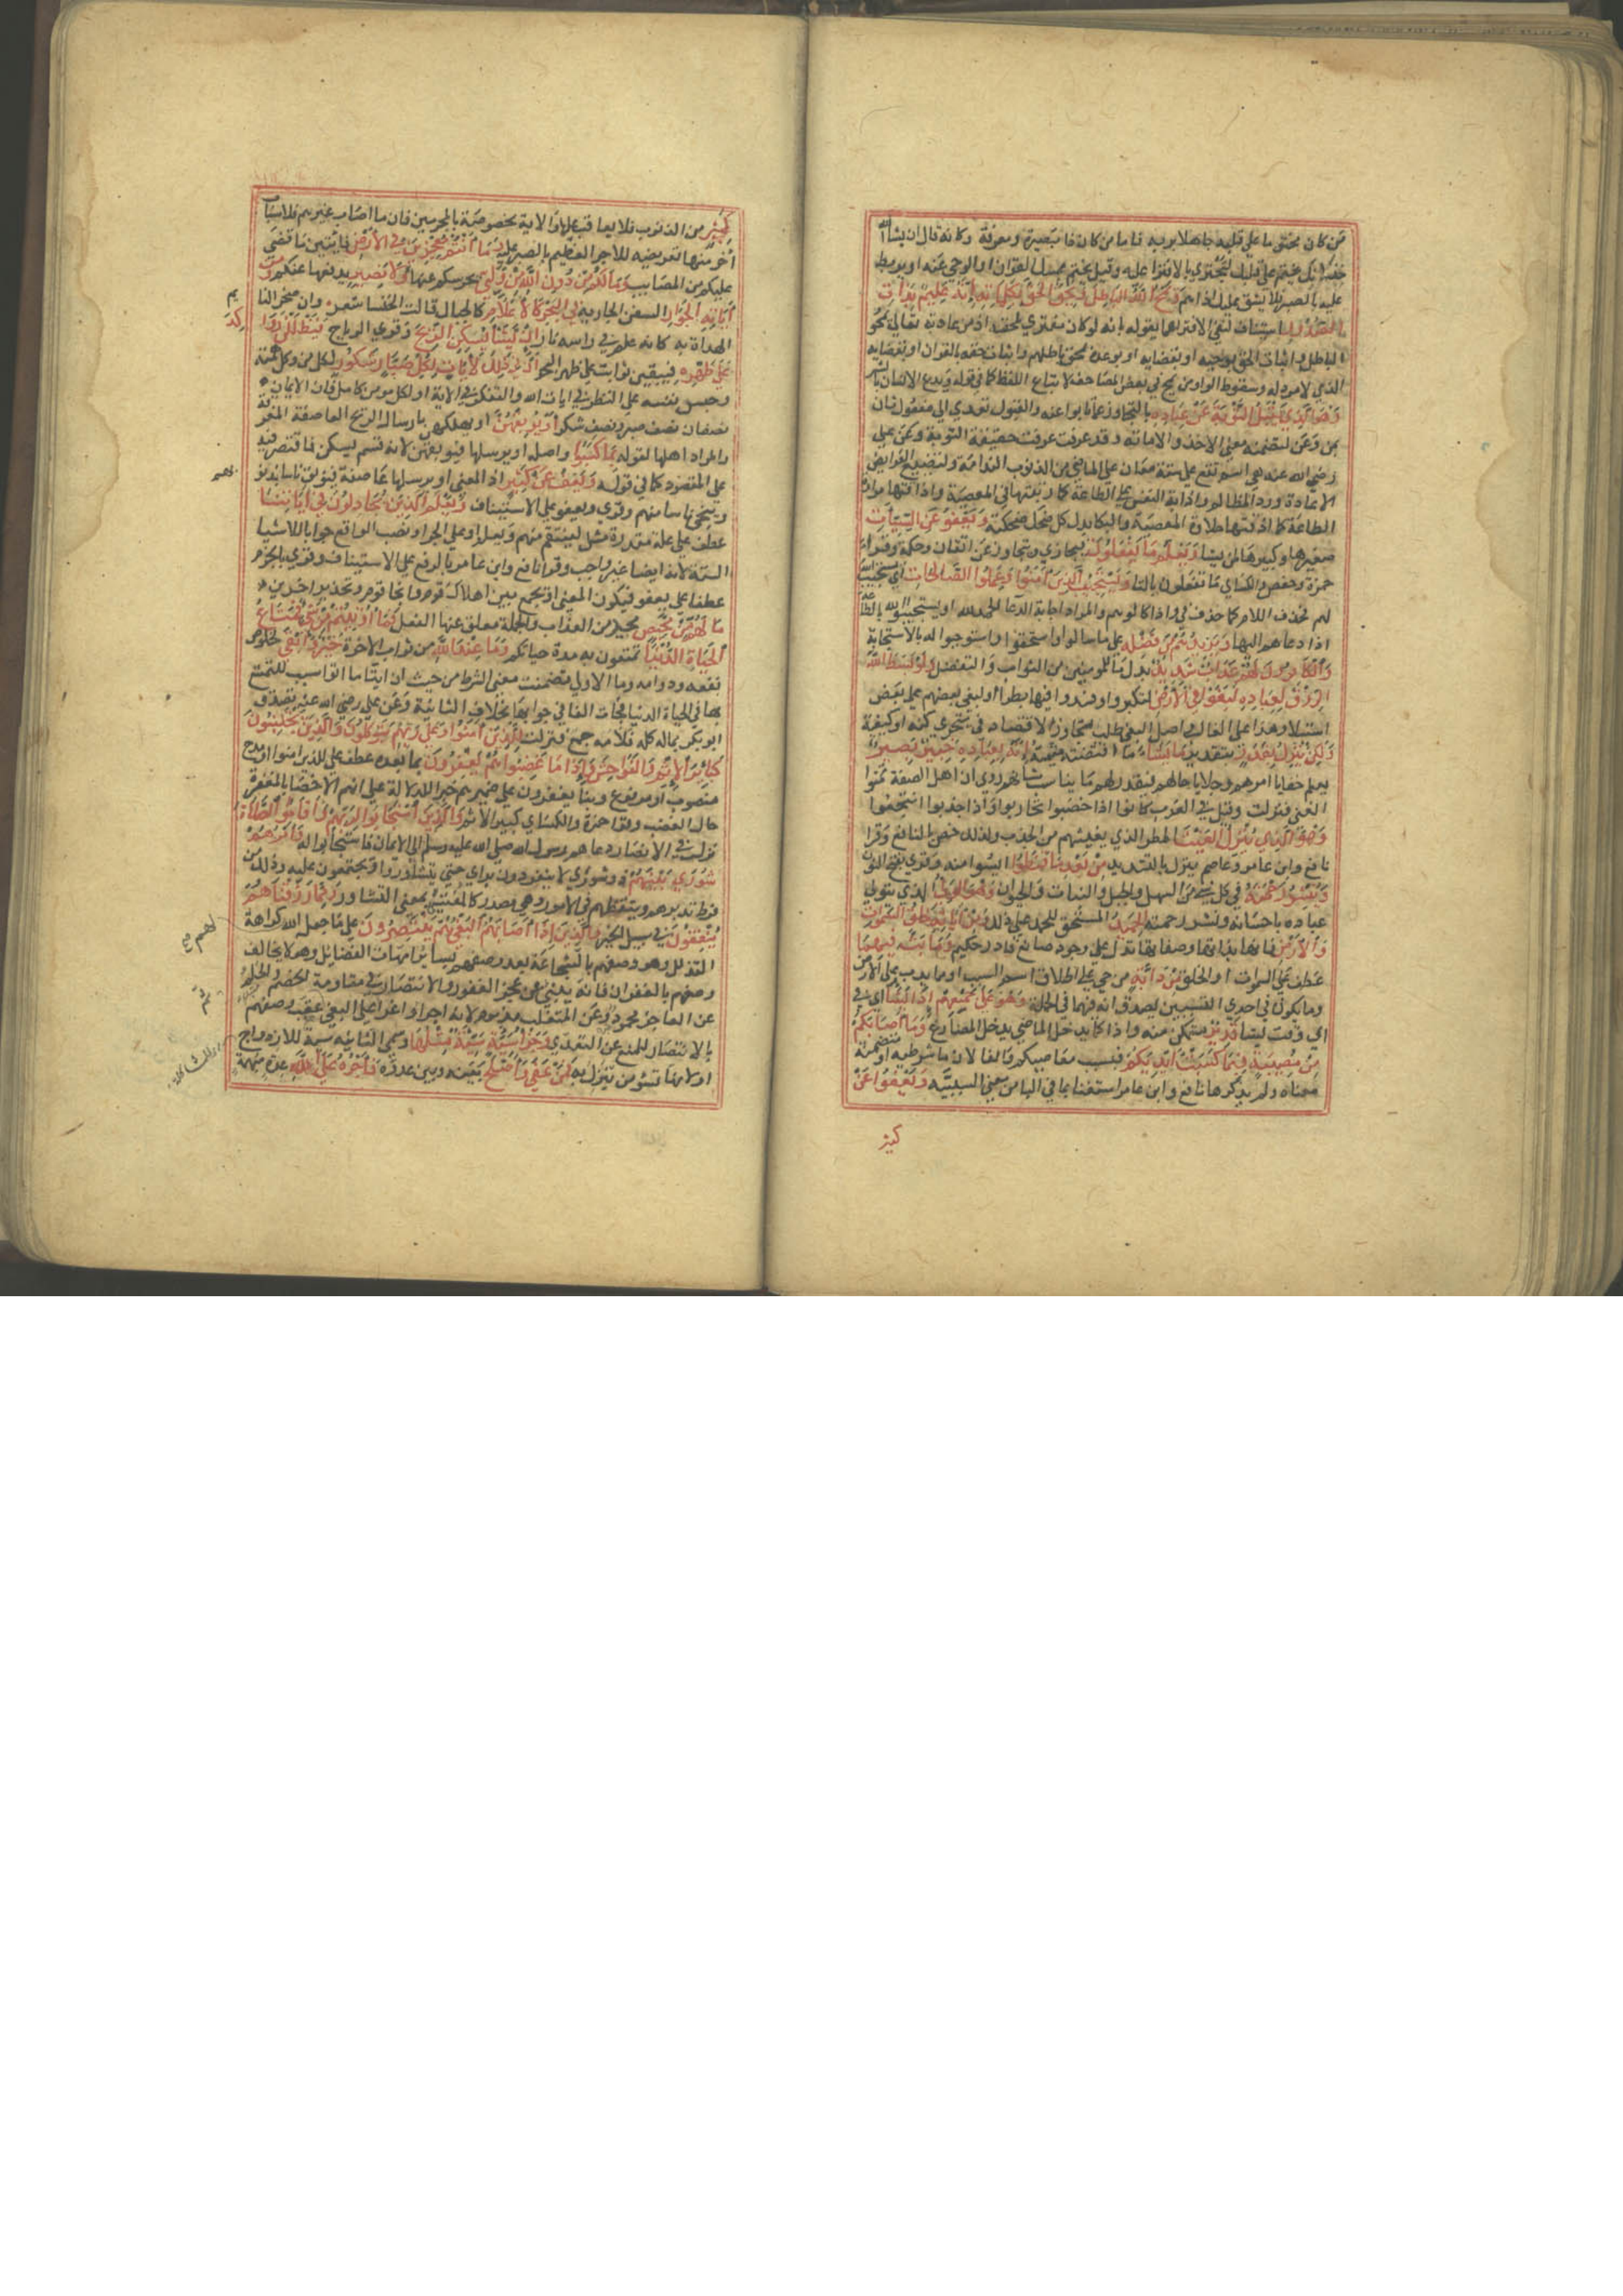 من كان مختوما على قلبه جاهلا بربه فاما من كان ذا بصيرة ومعرفة وكانه قال ان يشأ الله
خذلانك يختم على قلبك لتجتري بالافترا عليه وقيل يختم يمسك القران او الوحي عنه او يربط
عليه بالصبر فلا يشق عليك اذاهم ويمح الله الباطل ويحق الحق بكلماته انه عليم بذات
الصدور استيناف لنفي الافترا عما يقوله بانه لو كان مفترى لمحقه اذ من عادته تعالى محو
الباطل واثبات الحق بوحيه او بقضايه او بوعده بمحق باطلهم واثبات حقه بالقران او بقضايه
الذي لا مرد له وسقوط الواو من يمح في بعض المصاحف لاتباع اللفظ كما في قوله ويدع الانسان بالشر
وهو الذي يقبل التوبة عن عباده بالتجاوز عما تابوا عنه والقبول يعدي الى مفعول ثان
بمن وعن لتضمنه معنى الاخذ والابانة وقد عرفت حقيقة التوبة وعن علي
رضي الله عنه هي اسم تقع على ستة معان على الماضي من الذنوب الندامة ولتضييع الفرايض
الاعادة ورد المظالم واذابة النفس في الطاعة كما ربيتها في المعصية واذاقتها مرارة
الطاعة كما اذقتها حلاوة المعصية والبكا بدل كل ضحك ضحكته ويعفو عن السيات
صغيرها وكبيرها لمن يشا ويعلم ما تفعلون فيجازي ويتجاوز عن اتقان وحكمة وقرا
حمزة وحفص والكساي ما تفعلون بالتا ويستجيب الذين امنوا وعملوا الصالحات اي يستجيب الله
لهم فحذف اللام كما حذف في واذا كالوهم والمراد اجابة الدعا الحمد لله او يستجيبون لله بالطاعة
اذا دعاهم اليها ويزيدهم من فضله على ما سالوا واستحقوا واستوجبوا له بالاستجابة
والكافرون لهم عذاب شديد بدل ما للمومنين من الثواب والتفضل ولو بسط الله
الرزق لعباده لبغوا في الارض لتكبروا وافسدوا فيها بطرا او لبغى بعضهم على بعض
استيلا وهذا على الغالب واصل البغي طلب تجاوز الاقتصاد فيما يتحرى كمية او كيفية
ولكن ينزل بقدر بتقدير ما يشاء ما اقتضته مشيته انه بعباده خبير بصير
يعلم خفايا امرهم وجلايا حالهم فيقدر لهم ما يناسب شانهم روي ان اهل الصفة تمنوا
الغنى فنزلت وقيل في العرب كانوا اذا خصبوا تحاربوا واذا اجدبوا انتجعوا
وهو الذي ينزل الغيث المطر الذي يغيثهم من الجدب ولذلك خص بالنافع وقرا
نافع وابن عامر وعاصم ينزل بالتشديد من بعد ما قنطوا ايسوا منه وقري بفتح النون
وينشر رحمته في كل شي من السهل والجبل والنبات والحيوان وهو الولي الذي يتولى
عباده باحسانه ونشر رحمته الحميد المستحق للحمد على ذلك ومن اياته خلق السموات
والارض فانها بذاتها وصفاتها تدل على وجود صانع قادر حكيم وما بث فيهما
عطف على السموات او الخلق من دابة من حي على اطلاق اسم السبب او مما يدب على الارض
وما يكون في احدي الشيئين يصدق انه فيهما في الجملة وهو على جمعهم اذا يشا اي في
اي وقت يشا قدير متمكن منه واذا كما يدخل الماضي يدخل المضارع وما اصابكم
من مصيبة فبما كسبت ايديكم فبسبب معاصيكم والفا لان ما شرطية او متضمنة
معناه ولم يذكرها نافع وابن عامر استغنا بما في البا من معنى السببية ويعفوا عن
كثير
كثير من الذنوب فلا يعاقب عليها والاية مخصوصة بالمجرمين فان ما اصاب غيرهم فلاسباب
اخر منها تعريضه للاجر العظيم بالصبر عليه وما انتم بمعجزين في الارض فايتين ما قضى
عليكم من المصايب وما لكم من دون الله من ولي يحرسكم عنها ولا نصير يدفعها عنكم ومن
اياته الجوار السفن الجارية في البحر كالاعلام كالجبال قالت الخنسا شعر وان صخرا لتا
تم
الهداة به كانه علم في راسه نار ان يشا يسكن الريح وقري الرياح فيظللن رواكد
على ظهره فيبقين ثوابت على ظهر البحر ان في ذلك لايات لكل صبار شكور لكل من وكل همته
وحبس نفسه على النظر في ايات الله والتفكر في الاية او لكل مومن كامل فان الايمان
نصفان نصف صبر ونصف شكر او يوبقهن او يهلكهن بارسال الريح العاصفة المغرقة
والمراد اهلها لقوله بما كسبوا واصله او يرسلها فيوبقهن لانه قسم يسكن فاقتصر فيه
على المقصود كما في قوله ويعف عن كثير اذ المعنى او يرسلها عاصفة فيوبق ناسا بذنوبهم
وينجي ناسا منهم وقري ويعفو على الاستيناف ويعلم الذين يجادلون في اياتنا
عطف على علة مقدرة مثل لينتقم منهم ويعلم او على الجزا ونصب الواقع جوابا للاشيا
الستة لانه ايضا غير واجب وقرا نافع وابن عامر بالرفع على الاستيناف وقري بالجزم
عطفا على يعف فيكون المعنى او يجمع بين اهلاك قوم وانجا قوم وتحذير اخرين
ما لهم من محيص محيد من العذاب والجملة معلق عنها الفعل فما اوتيتم من شي فمتاع
الحياة الدنيا تمتعون به مدة حياتكم وما عند الله من ثواب الاخرة خير وابقى لخلوص
نفعه ودوامه وما الاولى تضمنت معنى الشرط من حيث ان ايتا ما اتوا سبب للتمتع
بها في الحياة الدنيا فجات الفا في جوابها بخلاف الثانية وعن علي رضي الله عنه تصدق
ابو بكر بماله كله فلامه جمع فنزلت للذين امنوا وعلى ربهم يتوكلون والذين يجتنبون
كباير الاثم والفواحش واذا ما غضبوا هم يغفرون بما بعده عطف على للذين امنوا او مدح
منصوب او مرفوع وبنا يغفرون على ضميرهم خبرا للدلالة على انهم الاخصا بالمغفرة
حال الغضب وقرا حمزة والكساي كبير الاثم والذين استجابوا لربهم واقاموا الصلاة
نزلت في الانصار دعاهم رسول الله صلى الله عليه وسلم الى الايمان فاستجابوا له وامرهم
شورى بينهم ذو شورى لا ينفردون براي حتى يتشاوروا ويجتمعون عليه وذلك من
فرط تدبرهم وتيقظهم في الامور وهي مصدر كالفتيا بمعنى التشاور ومما رزقناهم
ينفقون في سبيل الخير والذين اذا اصابهم البغي هم ينتصرون على ما جعل الله كراهة
التذلل وهو وصفهم بالشجاعة بعد وصفهم بساير امهات الفضايل وهو لا يخالف
وصفهم بالغفران فانه ينبئ عن عجز المغفور والانتصار في مقاومة الخصم والحلم
عن العاجز محمود وعن المتغلب مذموم لانه اجراء واغراء على البغي عقب وصفهم
بالانتصار للمنع عن التعدي وجزا سيئة سيئة مثلها وسمى الثانية سية للازدواج
او لانها تسوء من تنزل به فمن عفى واصلح بينه وبين عدوه فاجره على الله عدة مبهمة